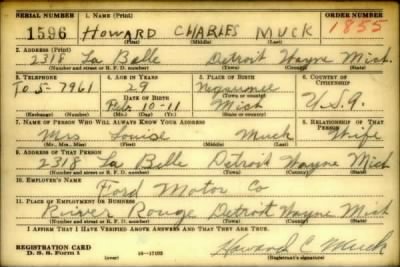 SERIAL NUMBER 1. NAME (Print) ORDER NUMBER
1596 HOWARD CHARLES MUCK 1855
(First) (Middle) (Last)
2. ADDRESS (Print)
2318 La Belle Detroit Wayne Mich.
(Number and street or R. F. D. number) (Town) (County) (State)
3. TELEPHONE 4. AGE IN YEARS 5. PLACE OF BIRTH 6. COUNTRY OF CITIZENSHIP
TO 5-7961 29 Negaunee
DATE OF BIRTH (Town or county)
Feb 10-11 Mich U.S.A.
(Exchange) (Number) (Mo.) (Day) (Yr.) (State or country)
7. NAME OF PERSON WHO WILL ALWAYS KNOW YOUR ADDRESS 8. RELATIONSHIP OF THAT PERSON
Mrs. Louise Muck Wife
(Mr., Mrs., Miss) (First) (Middle) (Last)
9. ADDRESS OF THAT PERSON
2318 La Belle Detroit Wayne Mich
(Number and street or R. F. D. number) (Town) (County) (State)
10. EMPLOYER'S NAME
Ford Motor Co
11. PLACE OF EMPLOYMENT OR BUSINESS
River Rouge Detroit Wayne Mich
(Number and street or R. F. D. number) (Town) (County) (State)
I AFFIRM THAT I HAVE VERIFIED ABOVE ANSWERS AND THAT THEY ARE TRUE.
REGISTRATION CARD Howard C Muck
D. S. S. Form 1 (over) (Registrant's signature)